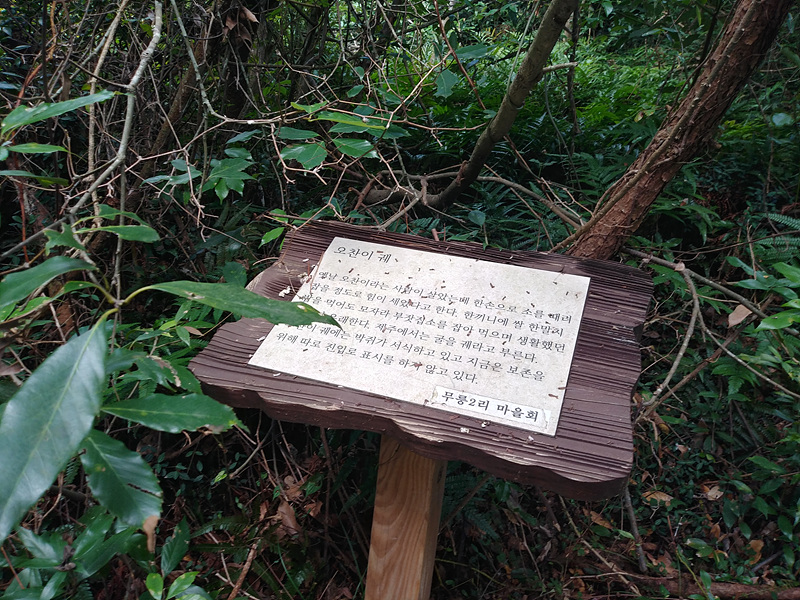 오찬이 궤
옛날 오찬이라는 사람이 살았는데 한손으로 소를 때려
잡을 정도로 힘이 세었다고 한다. 한끼니에 쌀 한말씩
먹어도 모자라 부잣집소를 잡아 먹으며 생활했던
한다. 제주에서는 굴을 궤라고 부른다.
궤에는 박쥐가 서식하고 있고 지금은 보존을
위해 따로 진입로 표시를 하지 않고 있다.
무릉2리 마을회